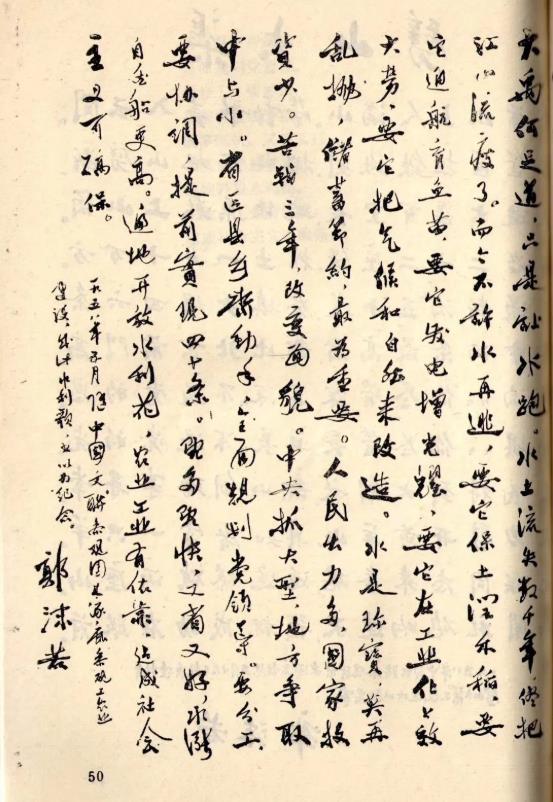 大禹何足道，只是让水跑。水土流失数千年，尽把
江山流瘦了。而今不許水再逃，要它保土潤禾稻。要
它通航育魚苗，要它发电增光耀，要它在工业化上效
大劳，要它把气候和自然来改造。水是珍寶，莫再
乱抛，储蓄節約，最为重要。人民出力多，國家投
資少。苦戰三年，改变面貌。中央抓大型，地方争取
中与小。省区县乡齐动手，全面規划党領導。要分工
要协調，提前實現四十条。既多既快又省又好，水漲
自然船更高。遍地开放水利花，农业工业有依靠，造成社会
主义可确保。
一九五八年五月随中国文联参观团 参观工农业
建設，作此水利歌，书以为纪念
郭沫若
50